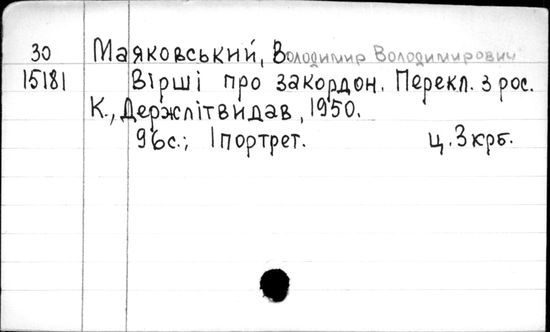 30 Маяковський, Володимир Володимирович
15181 Вірші про закордон. Перекл. з рос.
К., Держлітвидав, 1950.
96с.; 1 портрет. Ц. 3 крб.